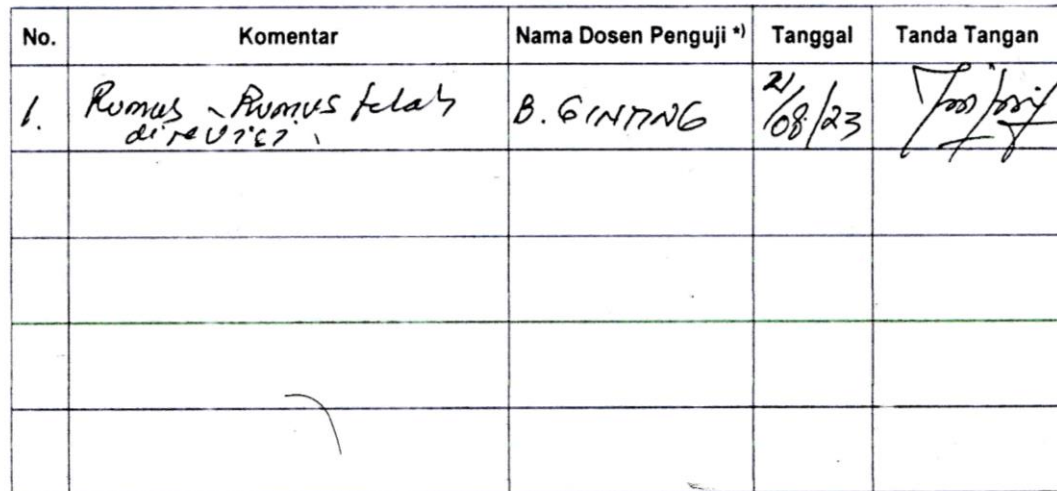 No. Komentar Nama Dosen Penguji *) Tanggal Tanda Tangan
1. Rumus - Rumus telah B. GINTING 21/08/23
direvisi.